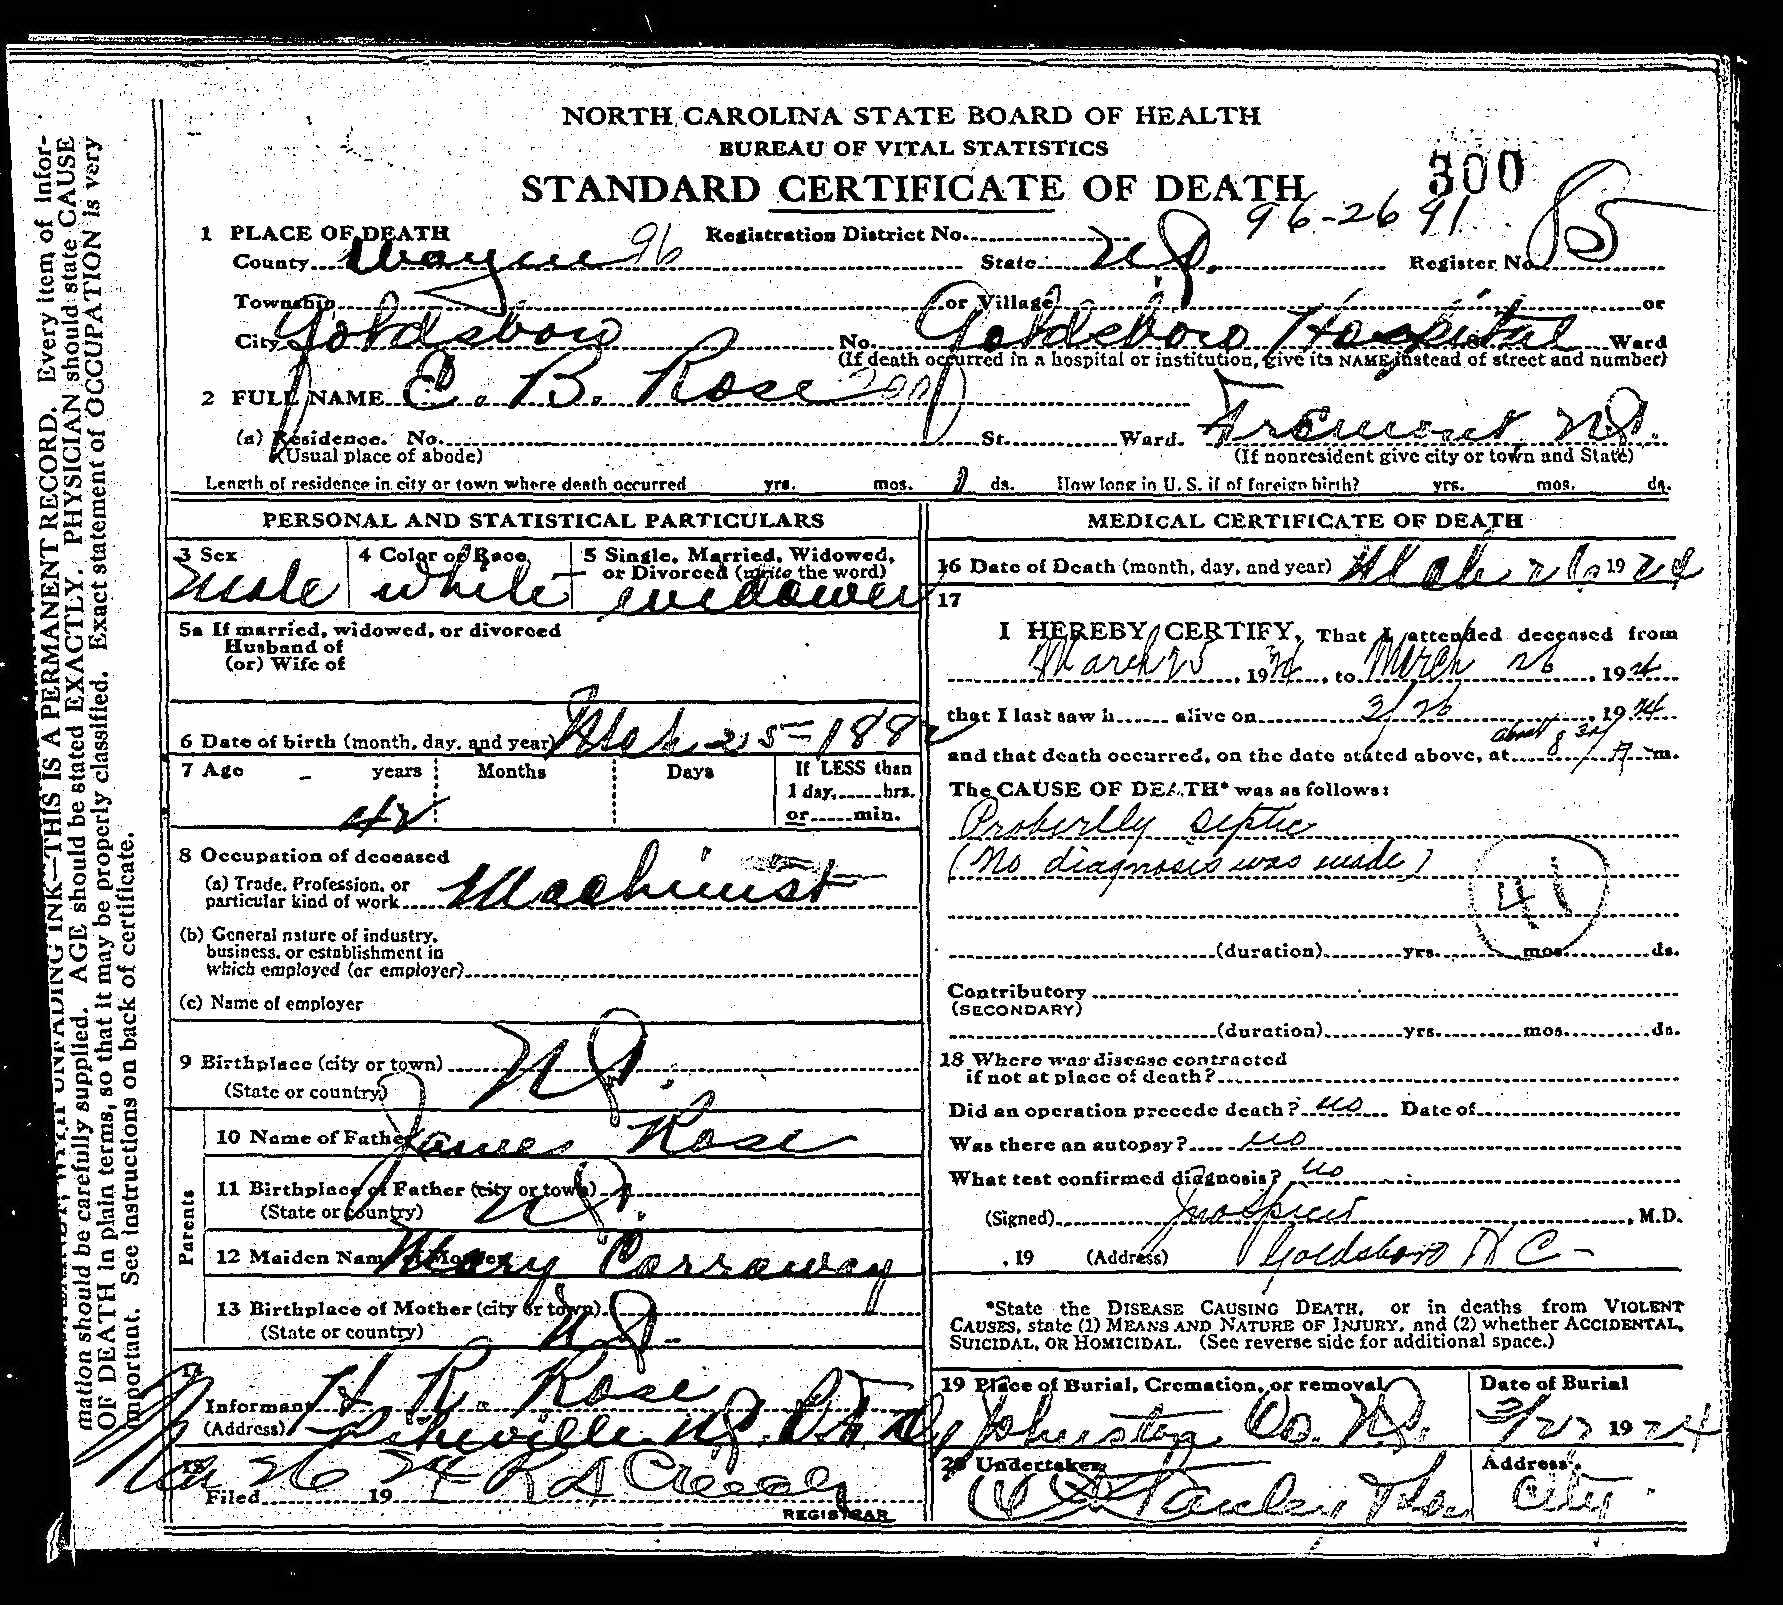 NORTH CAROLINA STATE BOARD OF HEALTH
BUREAU OF VITAL STATISTICS
STANDARD CERTIFICATE OF DEATH
300
96-2691
85
1 PLACE OF DEATH
Registration District No.
County Wayne 96 State N.C. Register No.
Township or Village or
City Goldsboro No. Goldsboro Hospital St. Ward
(If death occurred in a hospital or institution, give its NAME instead of street and number)
2 FULL NAME E. B. Rose 200
(a) Residence. No. St. Ward. Fremont, N.C.
(Usual place of abode) (If nonresident give city or town and State)
Length of residence in city or town where death occurred yrs. mos. 1 ds. How long in U. S. if of foreign birth? yrs. mos. ds.
PERSONAL AND STATISTICAL PARTICULARS
3 Sex male
4 Color or Race white
5 Single, Married, Widowed, or Divorced (write the word) widower
5a If married, widowed, or divorced
Husband of
(or) Wife of
6 Date of birth (month, day, and year) Mch 25-1882
7 Age years Months Days If LESS than
1 day, hrs.
or min.
42
8 Occupation of deceased
(a) Trade, Profession, or
particular kind of work Machinist
(b) General nature of industry,
business, or establishment in
which employed (or employer)
(c) Name of employer
9 Birthplace (city or town) N.C.
(State or country)
Parents
10 Name of Father James Rose
11 Birthplace of Father (city or town) N.C.
(State or country)
12 Maiden Name of Mother Mary Carraway
13 Birthplace of Mother (city or town) N.C.
(State or country)
14
Informant H. R. Rose
(Address) Pikeville N.C.
15
Filed Mar 26 1924
REGISTRAR
MEDICAL CERTIFICATE OF DEATH
16 Date of Death (month, day, and year) Mch 26 1924
17
I HEREBY CERTIFY, That I attended deceased from
March 25, 1924, to March 26, 1924
that I last saw h alive on 3/26, 1924
and that death occurred, on the date stated above, at about 8 30/ A m.
The CAUSE OF DEATH* was as follows:
Proberlly septic
(No diagnosis was made)
41
(duration) yrs. mos. ds.
Contributory
(SECONDARY)
(duration) yrs. mos. ds.
18 Where was disease contracted
if not at place of death?
Did an operation precede death? no Date of
Was there an autopsy? no
What test confirmed diagnosis? no
(Signed) Jno Spicer, M.D.
, 19 (Address) Goldsboro N C-
*State the DISEASE CAUSING DEATH, or in deaths from VIOLENT
CAUSES, state (1) MEANS AND NATURE OF INJURY, and (2) whether ACCIDENTAL,
SUICIDAL, OR HOMICIDAL. (See reverse side for additional space.)
19 Place of Burial, Cremation, or removal Johnston Co. N.C.
Date of Burial 3/27 1924
20 Undertaker
Address City.
THIS IS A PERMANENT RECORD. Every item of infor-
mation should be carefully supplied. AGE should be stated EXACTLY. PHYSICIAN should state CAUSE
OF DEATH in plain terms, so that it may be properly classified. Exact statement of OCCUPATION is very
important. See instructions on back of certificate.